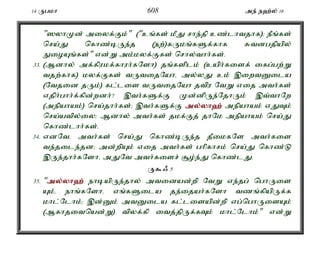 14 ருபமா 608 அந் நஹ்ல் 16
"ஸலாமுன் அலைக்கும்" ("உங்கள் மீது சாந்தி உண்டாவதாக); நீங்கள்
செய்து கொண்டிருந்த (நற்)கருமங்களுக்காக சுவனபதியில்
நுழையுங்கள்" என்று அம்மலக்குகள் சொல்வார்கள்.
33. (ஆனால் அக்கிரமக்காரர்களோ) தங்களிடம் (உயிர்களைக் கைப்பற்று
வதற்காக) மலக்குகள் வருவதையோ, அல்லது உம் இறைவனுடைய
(வேதனை தரும்) கட்டளை வருவதையோ தவிர வேறு எதை அவர்கள்
எதிர்பார்க்கின்றனர்? இவர்களுக்கு முன்னிருந்தோரும் இவ்வாறே
(அநியாயம்) செய்தார்கள்; இவர்களுக்கு அல்லாஹ் அநியாயம் எதுவும்
செய்யவில்லை; ஆனால் அவர்கள் தமக்குத் தாமே அநியாயம் செய்து
கொண்டார்கள்.
34. எனவே, அவர்கள் செய்து கொண்டிருந்த தீமைகளே அவர்களை
வந்தடைந்தன; அன்றியும் எதை அவர்கள் பரிகாசம் செய்து கொண்டு
இருந்தார்களோ, அதுவே அவர்களைச் சூழ்ந்து கொண்டது.
ருகூ 5
35. "அல்லாஹ் நாடியிருந்தால் அவனையன்றி வேறு எந்தப் பொருளை
யும், நாங்களோ, எங்களுடைய தந்தையர்களோ வணங்கியிருக்க
மாட்டோம்; இன்னும் அவனுடைய கட்டளையின்றி எப்பொருளையும்
(ஆகாதவையென்று) விலக்கி வைத்திருக்கவும் மாட்டோம்" என்று